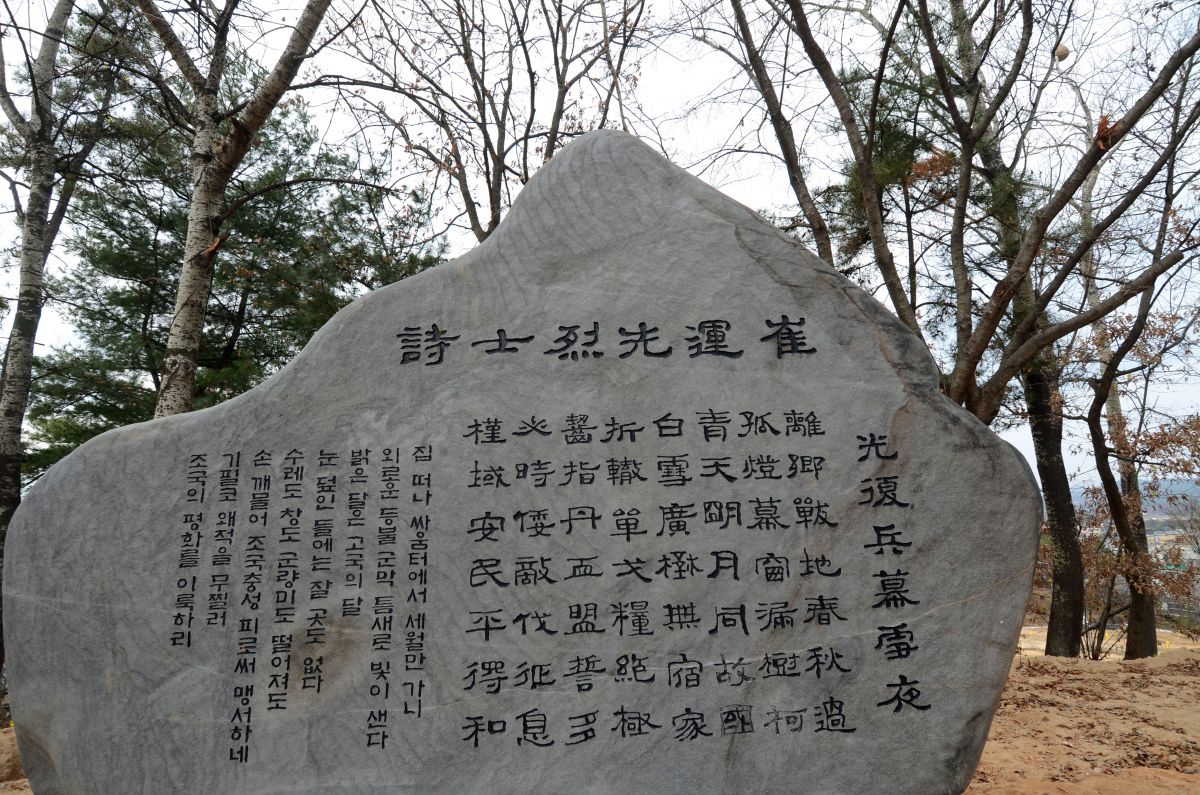 崔運先烈士詩
光復兵幕雪夜
離鄉戰地春秋過
孤燈幕窗漏柯
青天明月同故國
白雪廣無宿家
折轍單戈糧絶極
齧指丹血盟誓多
必時倭敵伐征息
槿域安民平得和
집 떠나 싸움터에서 세월만 가니
외로운 등불 군막 틈새로 빛이 샌다
밝은 달은 고국의 달
눈 덮인 들에는 잘 곳도 없다
수레도 창도 군량미도 떨어져도
손 깨물어 조국충성 피로써 맹서하네
기필코 왜적을 무찔러
조국의 평화를 이룩하리